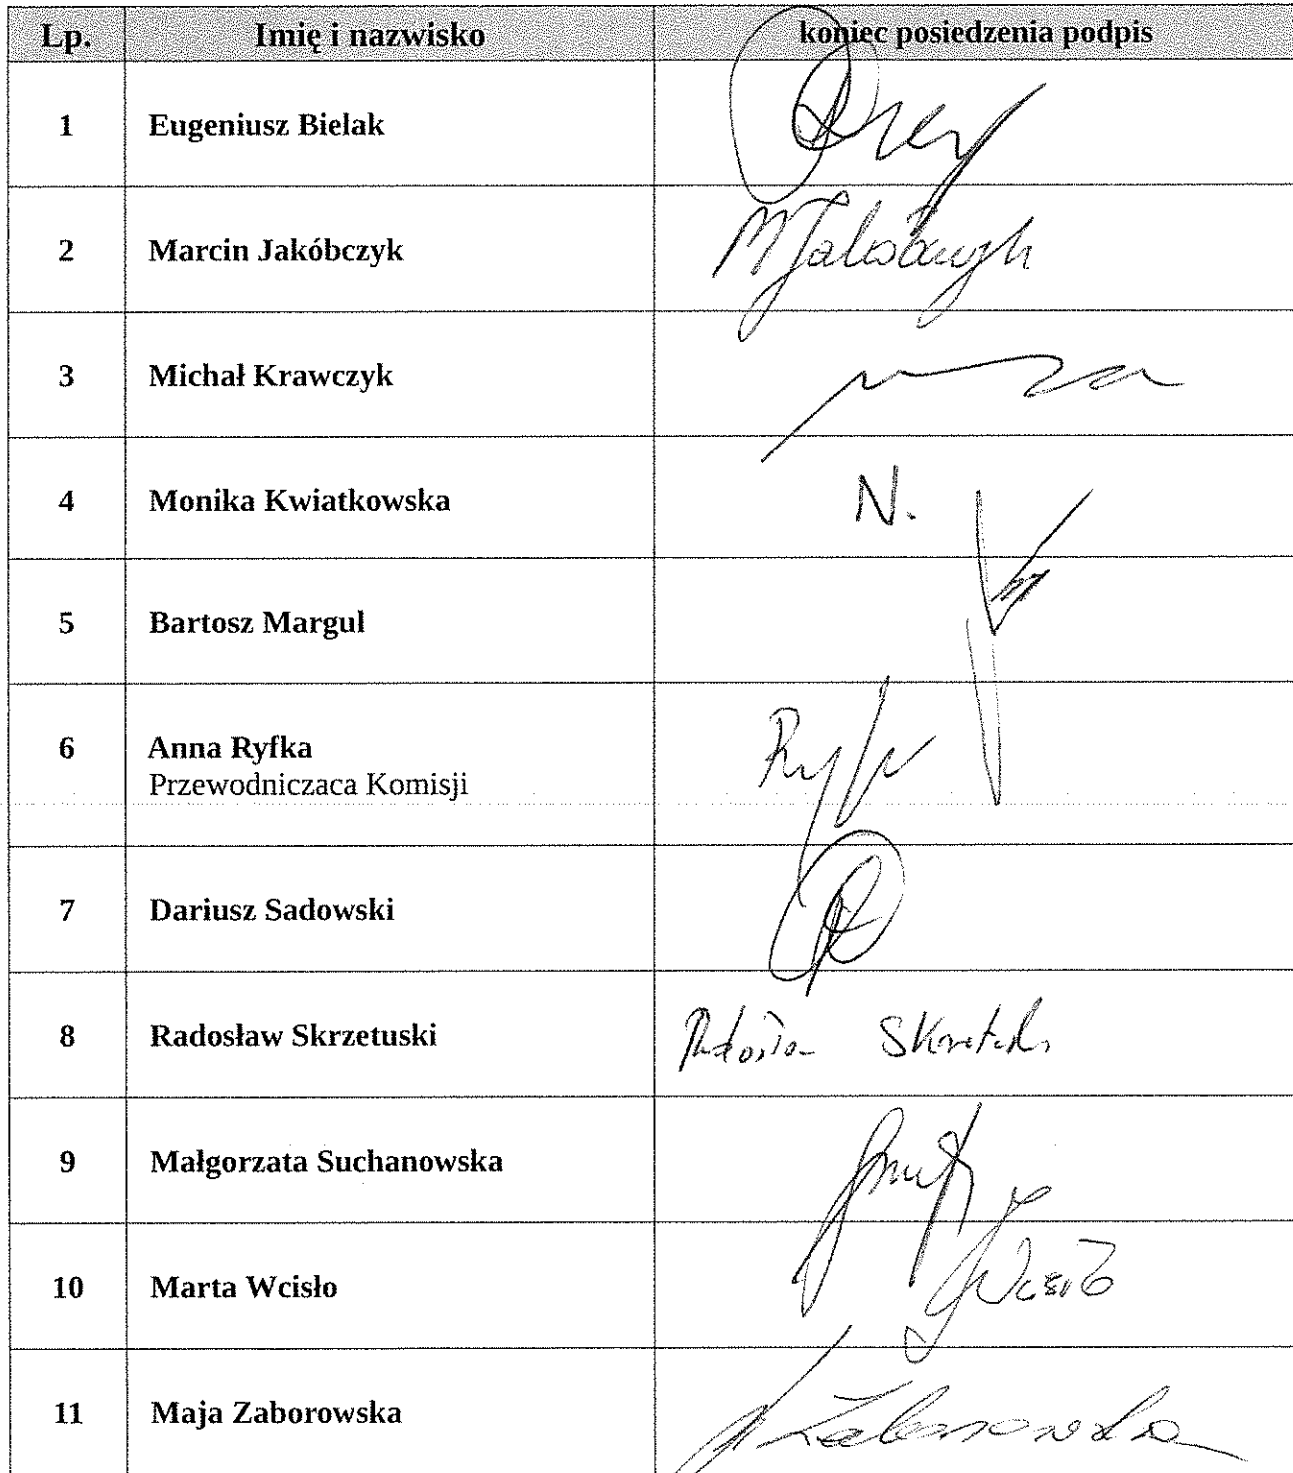 Lp. Imię i nazwisko koniec posiedzenia podpis
1 Eugeniusz Bielak
2 Marcin Jakóbczyk MJakóbczyk
3 Michał Krawczyk
4 Monika Kwiatkowska N.
5 Bartosz Margul
6 Anna Ryfka
Przewodniczaca Komisji
7 Dariusz Sadowski
8 Radosław Skrzetuski
9 Małgorzata Suchanowska
10 Marta Wcisło Wcisło
11 Maja Zaborowska Zaborowska